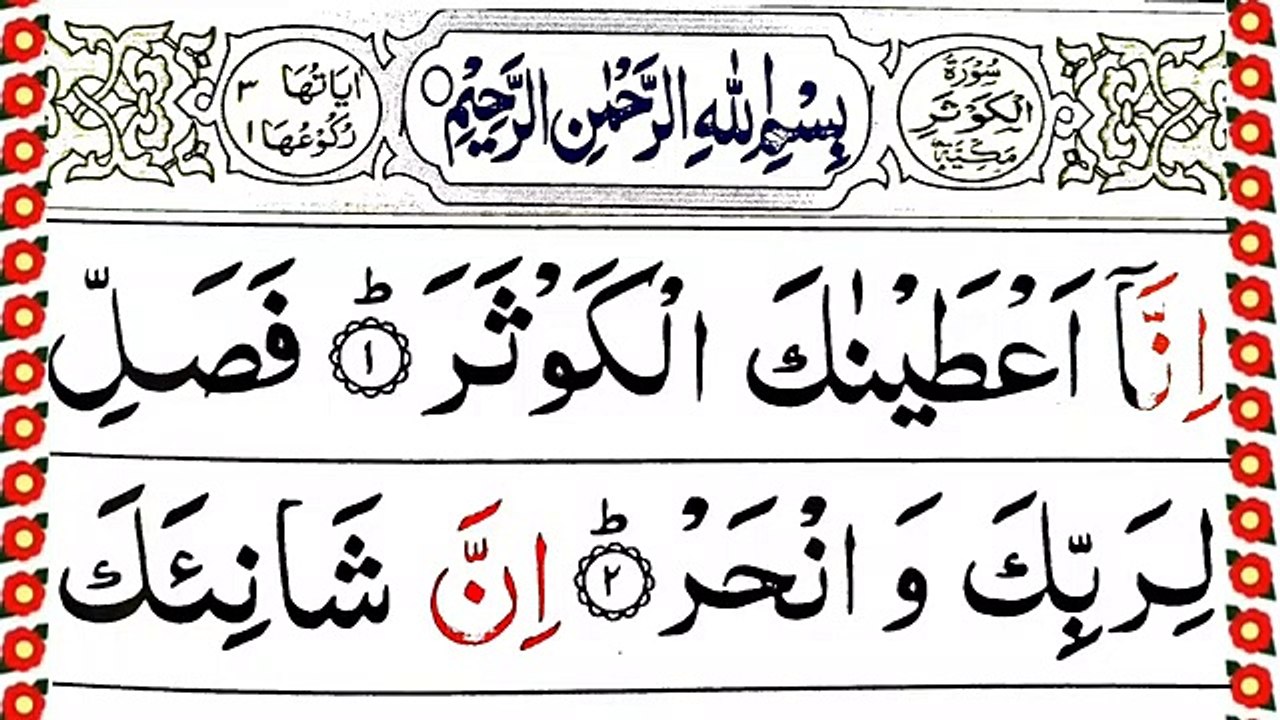 سُوْرَةُ الْكَوْثَرِ مَكِّيَّةٌ
بِسْمِ اللّٰهِ الرَّحْمٰنِ الرَّحِيْمِ
اٰيَاتُهَا ٣
رُكُوْعُهَا ١
اِنَّاۤ اَعْطَيْنٰكَ الْكَوْثَرَ ؕ ۝١ فَصَلِّ
لِرَبِّكَ وَ انْحَرْ ؕ ۝٢ اِنَّ شَانِئَكَ